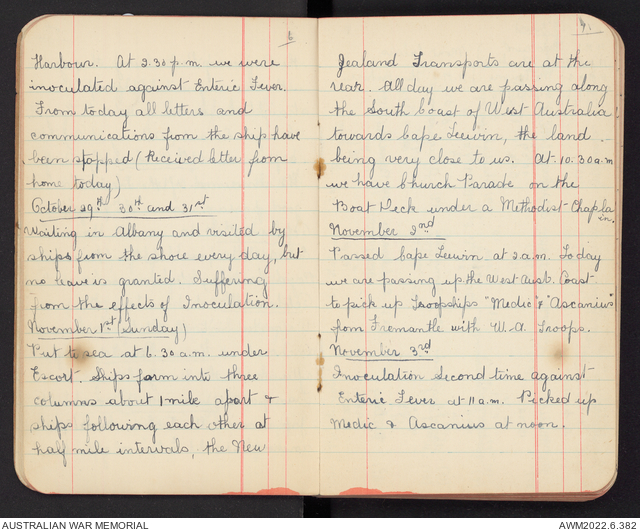 6
Harbour. At 2.30 p.m. we were
inoculated against Enteric Fever.
From today all letters and
communications from the ship have
been stopped (Received letter from
home today)
October 29th 30th and 31st
Waiting in Albany and visited by
ships from the shore every day, but
no leave is granted. Suffering
from the effects of Inoculation.
November 1st (Sunday)
Put to sea at 6.30 a.m. under
Escort. Ships form into three
columns about 1 mile apart &
ships following each other at
half mile intervals, the New
7.
Zealand Transports are at the
rear. All day we are passing along
the South Coast of West Australia
towards Cape Leuwin, the land
being very close to us. At 10.30 a.m
we have Church Parade on the
Boat Deck under a Methodist Chapla
in.
November 2nd
Passed Cape Leuwin at 2 a.m. Today
we are passing up the West Aust. Coast
to pick up Troopships "Medic" & "Ascanius"
from Fremantle with W.A. Troops.
November 3rd
Inoculation second time against
Enteric Fever at 11 a.m. Picked up
Medic & Ascanius at noon.
AUSTRALIAN WAR MEMORIAL
AWM2022.6.382